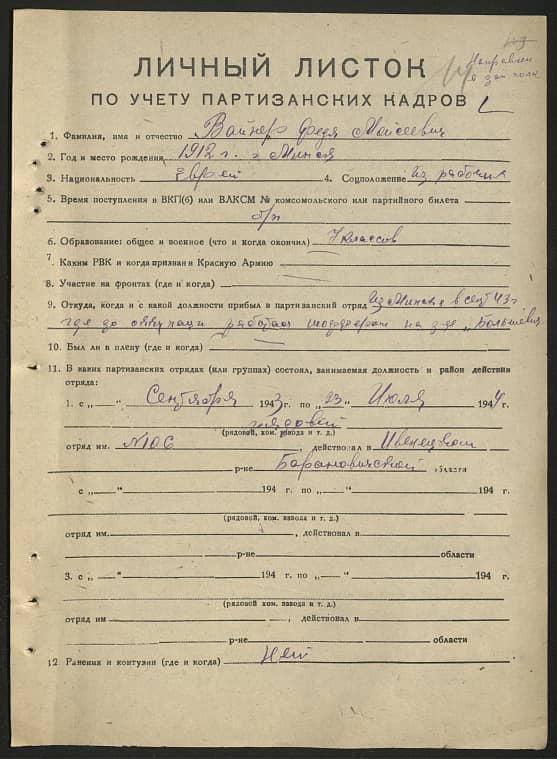 Направлен
в зап. полк
ЛИЧНЫЙ ЛИСТОК
ПО УЧЕТУ ПАРТИЗАНСКИХ КАДРОВ
1. Фамилия, имя и отчество Вайнер Федя Моисеевич
2. Год и место рождения 1912 г. г. Минск
3. Национальность Еврей 4. Соцположение Из рабочих
5. Время поступления в ВКП(б) или ВЛКСМ № комсомольского или партийного билета
б/п
6. Образование: общее и военное (что и когда окончил) 7 классов
7. Каким РВК и когда призван в Красную Армию
8. Участие на фронтах (где и когда)
9. Откуда, когда и с какой должности прибыл в партизанский отряд Из Минска в сент 43 г.
где до оккупации работал на з-де „Большевик
10. Был ли в плену (где и когда)
11. В каких партизанских отрядах (или группах) состоял, занимаемая должность и район действия
отряда:
1. с „ — “ Сентября 1943 г. по „23“ Июля 1944 г.
рядовой
(рядовой, ком. взвода и т. д.)
отряд им. №106, действовал в Ивенецком
р-не Барановичской области
с „ — “ 194 г. по „ — “ 194 г.
(рядовой, ком. взвода и т. д.)
отряд им. , действовал в
р-не области
3. с „ — “ 194 г. по „ — “ 194 г.
(рядовой ком. взвода и т. д.)
отряд им , действовал в
р-не области
12 Ранения и контузии (где и когда) Нет